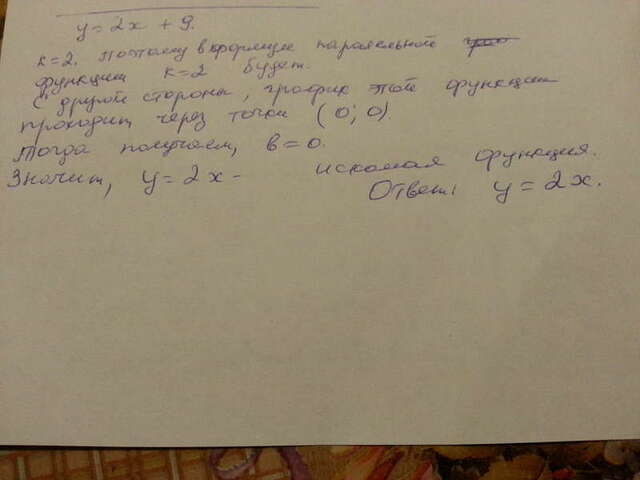 y = 2x + 9.
k=2. Поэтому в формуле паралельной
функции k=2 будет.
С другой стороны, график этой функции
проходит через точки (0; 0).
Тогда получаем, b=0.
Значит, y=2x - искомая функция.
Ответ: y=2x.